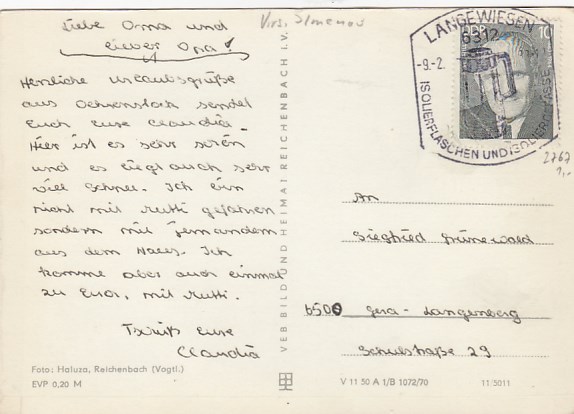 Liebe Oma und
lieber Opa!
Herzliche Urlaubsgrüße
aus Oehrenstock sendet
Euch Eure Claudia.
Hier ist es sehr schön
und es liegt auch sehr
viel Schnee. Ich bin
nicht mit Mutti gefahren
sondern mit jemandem
aus dem Haus. Ich
komme aber auch einmal
zu Euch, mit Mutti.
Tschüß Eure
Claudia
Foto: Haluza, Reichenbach (Vogtl.)
EVP 0,20 M
VEB BILD UND HEIMAT REICHENBACH I.V.
V 11 50 A 1/B 1072/70
LANGEWIESEN
6312
-9.-2.
ISOLIERFLASCHEN UND ISOLIERGEFÄSSE
DDR 10
2767
1,-
An
Siegfried Grünewald
6500 Gera - Langenberg
Schulstraße 29